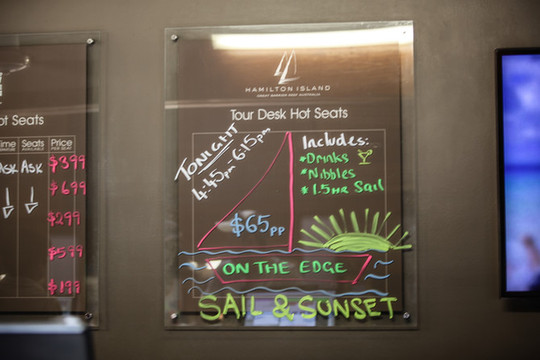 ot Seats
ime
Seats
AVAILABLE
Price
PER SEAT
ASK
ASK
$399
$699
$299
$599
$199
HAMILTON ISLAND
GREAT BARRIER REEF AUSTRALIA
Tour Desk Hot Seats
TONIGHT
4:45pm - 6:15pm
Includes:
*Drinks
*Nibbles
*1.5HR Sail
$65pp
ON THE EDGE
SAIL & SUNSET